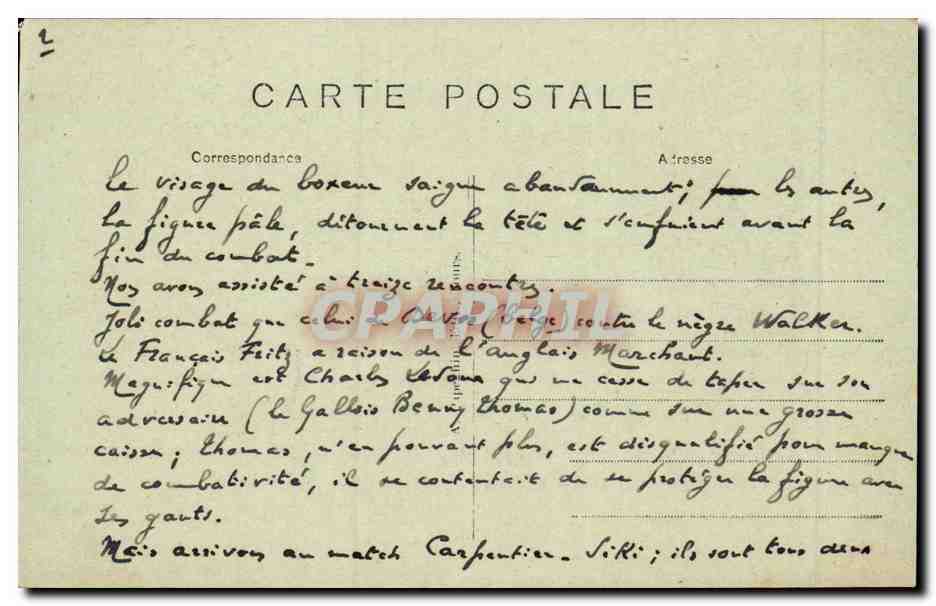 2
CARTE POSTALE
Correspondance
Adresse
le visage du boxeur saigne abondamment; les autres,
la figure pâle, détournent la tête et s'enfuient avant la
fin du combat.
Nous avons assisté à treize rencontres.
Joli combat que celui de Devos (belge) contre le nègre Walker.
Le Français Fritz a raison de l'anglais Marchant.
Magnifique est Charles Ledoux qui ne cesse de taper sur son
adversaire (le Gallois Benny Thomas) comme sur une grosse
caisse; Thomas, n'en pouvant plus, est disqualifié pour manque
de combativité, il se contentait de se protéger la figure avec
ses gants.
Mais arrivons au match Carpentier-Siki; ils sont tous deux
CARPHIL